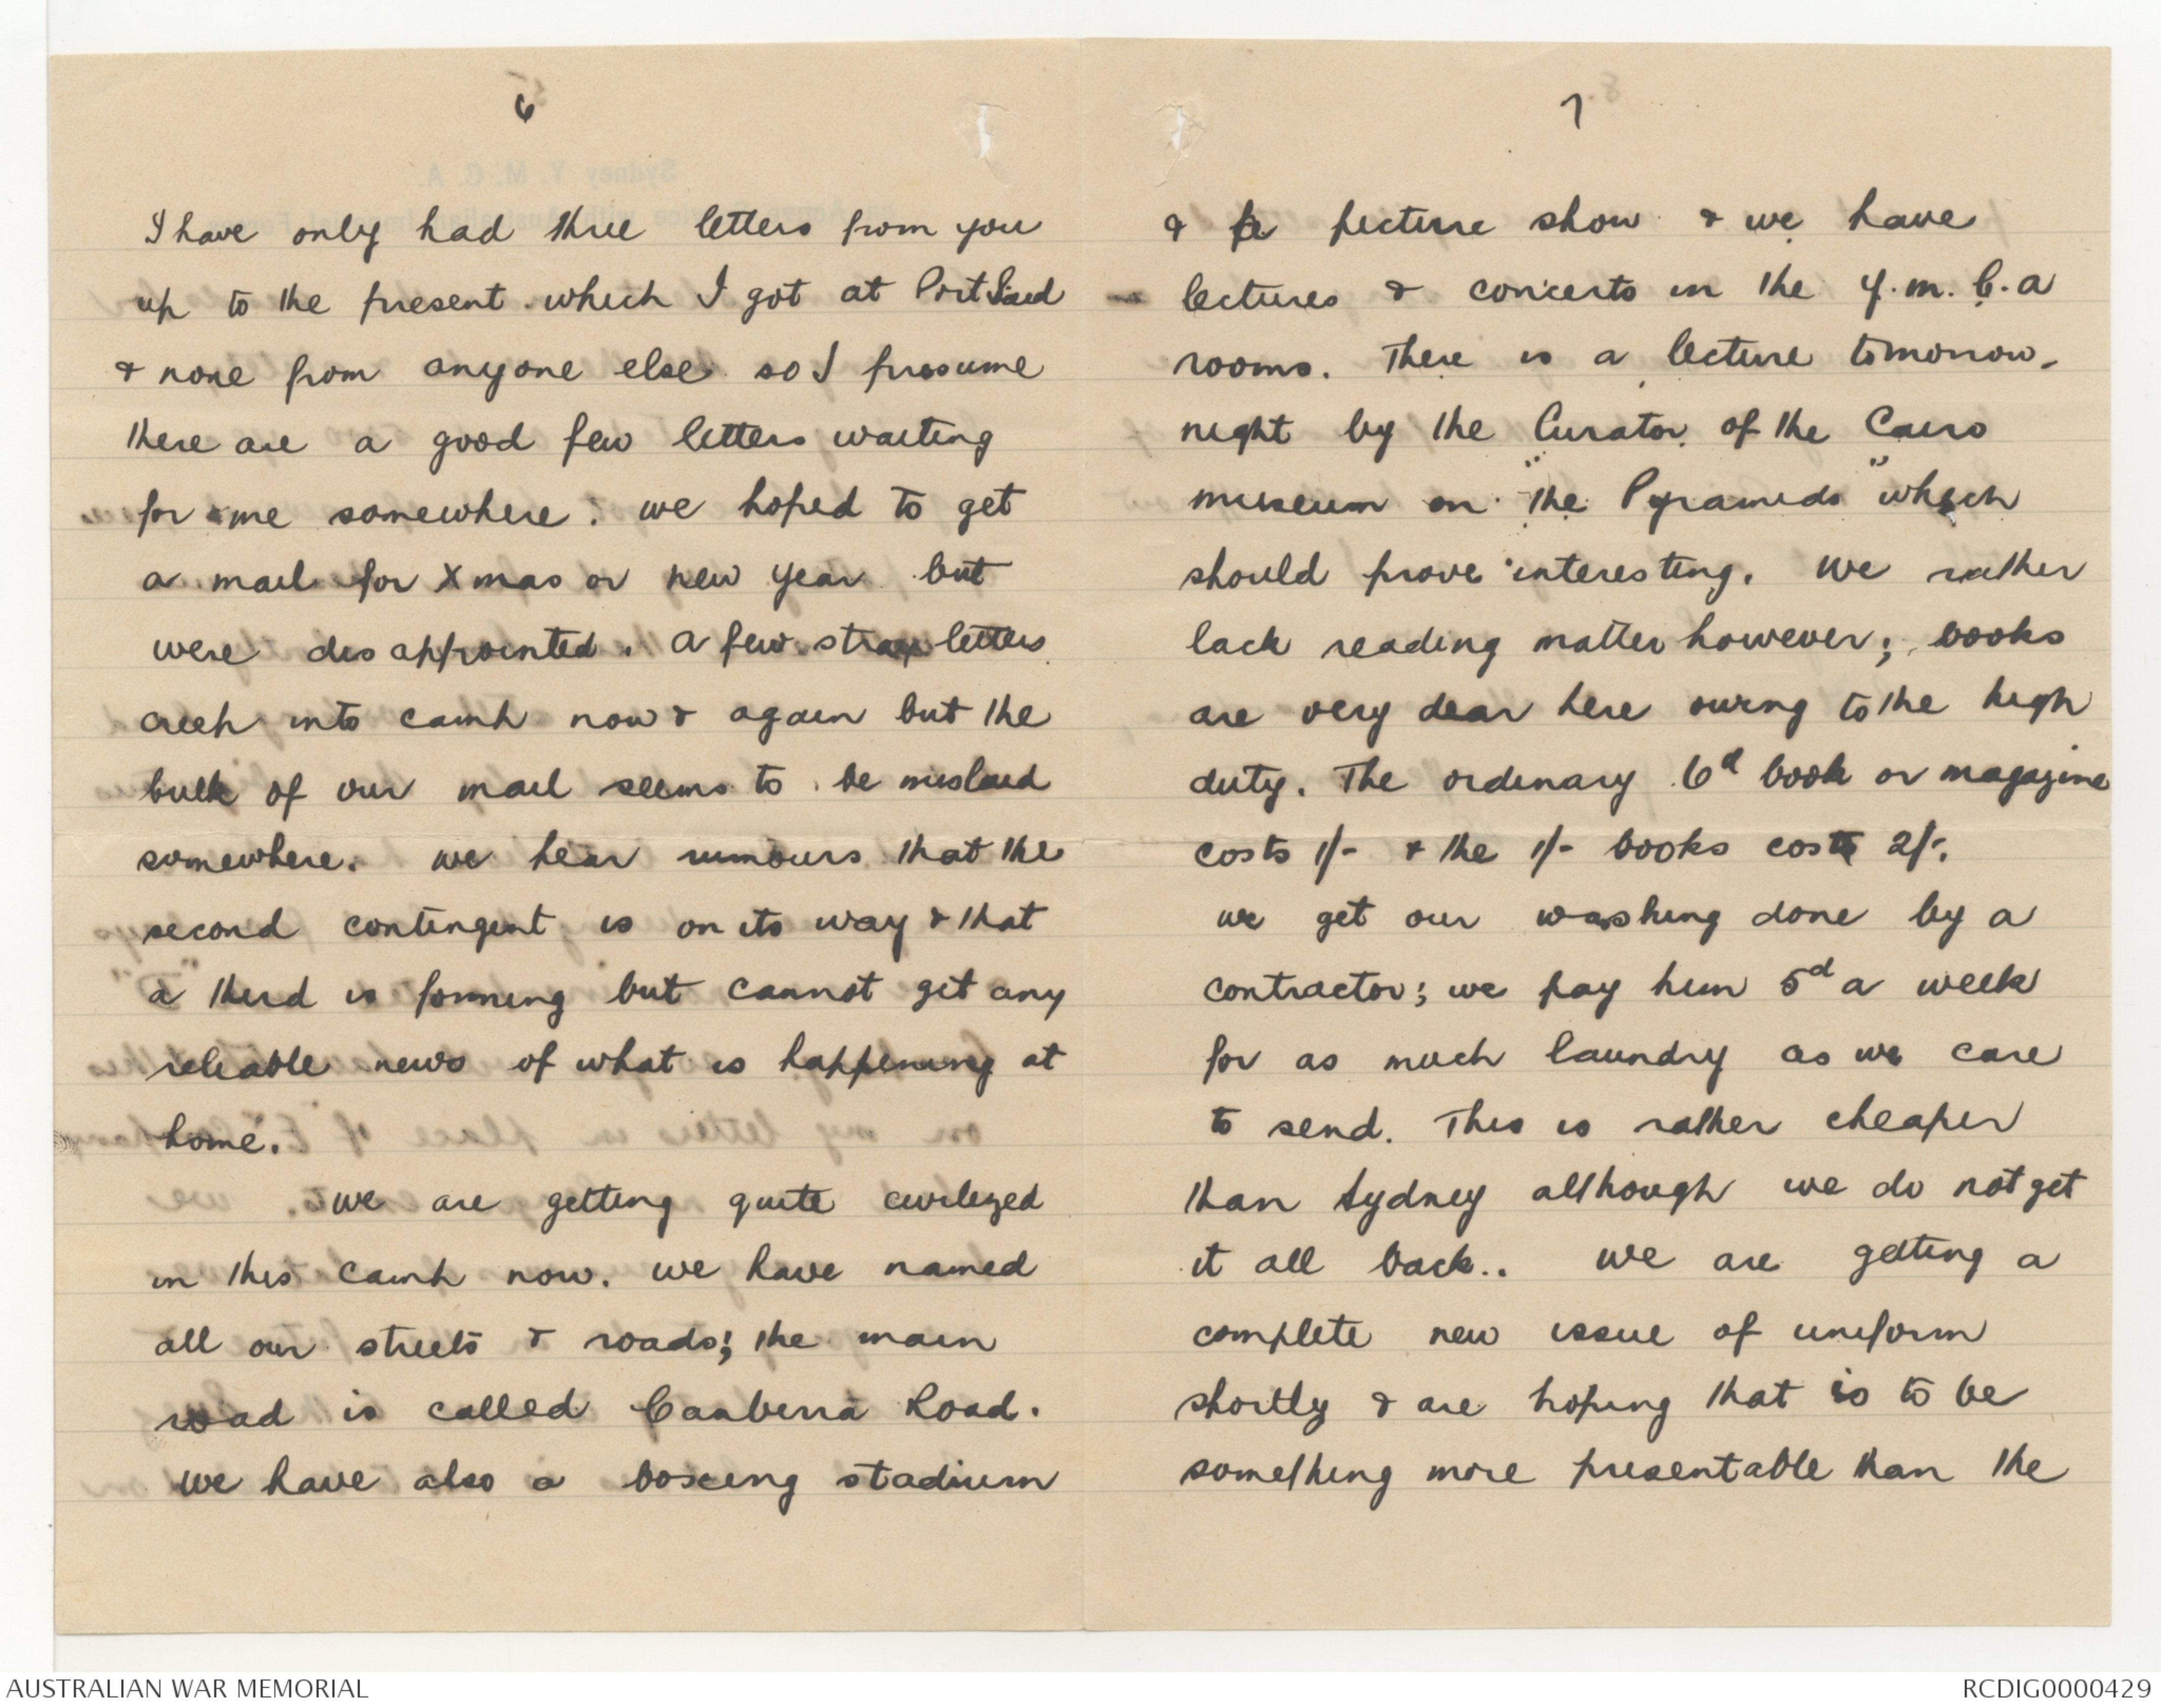 6
I have only had three letters from you
up to the present which I got at Port Said
& none from anyone else so I presume
there are a good few letters waiting
for me somewhere. we hoped to get
a mail for Xmas or new year but
were disappointed. a few stray letters
creep into camp now & again but the
bulk of our mail seems to be mislaid
somewhere. we hear rumours that the
second contingent is on its way & that
a third is forming but cannot get any
reliable news of what is happening at
home.
we are getting quite civilized
in this camp now. we have named
all our streets & roads; the main
road is called Canberra Road.
we have also a boxing stadium
7
& picture show & we have
lectures & concerts in the Y.M.C.A
rooms. There is a lecture tomorrow
night by the Curator of the Cairo
museum on "the Pyramids" which
should prove interesting. we rather
lack reading matter however; books
are very dear here owing to the high
duty. The ordinary 6d book or magazine
costs 1/- & the 1/- books cost 2/-.
we get our washing done by a
contractor; we pay him 5d a week
for as much laundry as we care
to send. This is rather cheaper
than Sydney although we do not get
it all back.. we are getting a
complete new issue of uniform
shortly & are hoping that is to be
something more presentable than the
AUSTRALIAN WAR MEMORIAL
RCDIG0000429